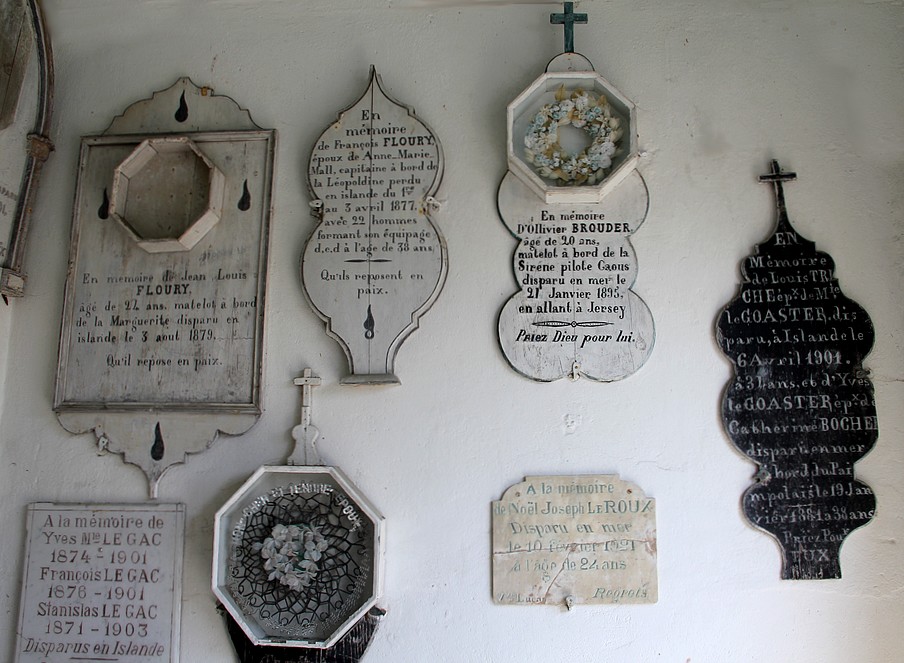 En mémoire de Jean Louis
FLOURY,
âgé de 24 ans. matelot à bord
de la Marguerite disparu en
islande le 3 aout 1879.
Qu'il repose en paix.
En
mémoire
de François FLOURY,
époux de Anne-Marie
Mall, capitaine à bord de
la Léopoldine perdu
en islande du 1er
au 3 avril 1877.
avec 22 hommes
formant son équipage
d,c,d à l'age de 38 ans.
Qu'ils reposent en
paix.
En mémoire
D'Ollivier BROUDER
âgé de 20 ans.
matelot à bord de la
Sirène pilote Caous
disparu en mer le
21 Janvier 1895.
en allant à Jersey
Priez Dieu pour lui.
EN
Mémoire
de Louis TR
CHE épx de Mie
le GOASTER, dis
paru, à Islande le
6 Avril 1901.
à 31 ans. et d'Yves
le GOASTER épx de
Catherine ROCHE
disparu en mer
à bord du Pai
mpolais le 19 Jan
vier 1881 a 38 ans
Priez Pour
EUX
A la mémoire de
Yves Mie LE GAC
1874 - 1901
François LE GAC
1876 - 1901
Stanislas LE GAC
1871 - 1903
Disparus en Islande
ET TENDRE EPOUX
A la mémoire
de Noël Joseph LE ROUX
Disparu en mer
le 10 février 1921
à l'âge de 24 ans
Regrets